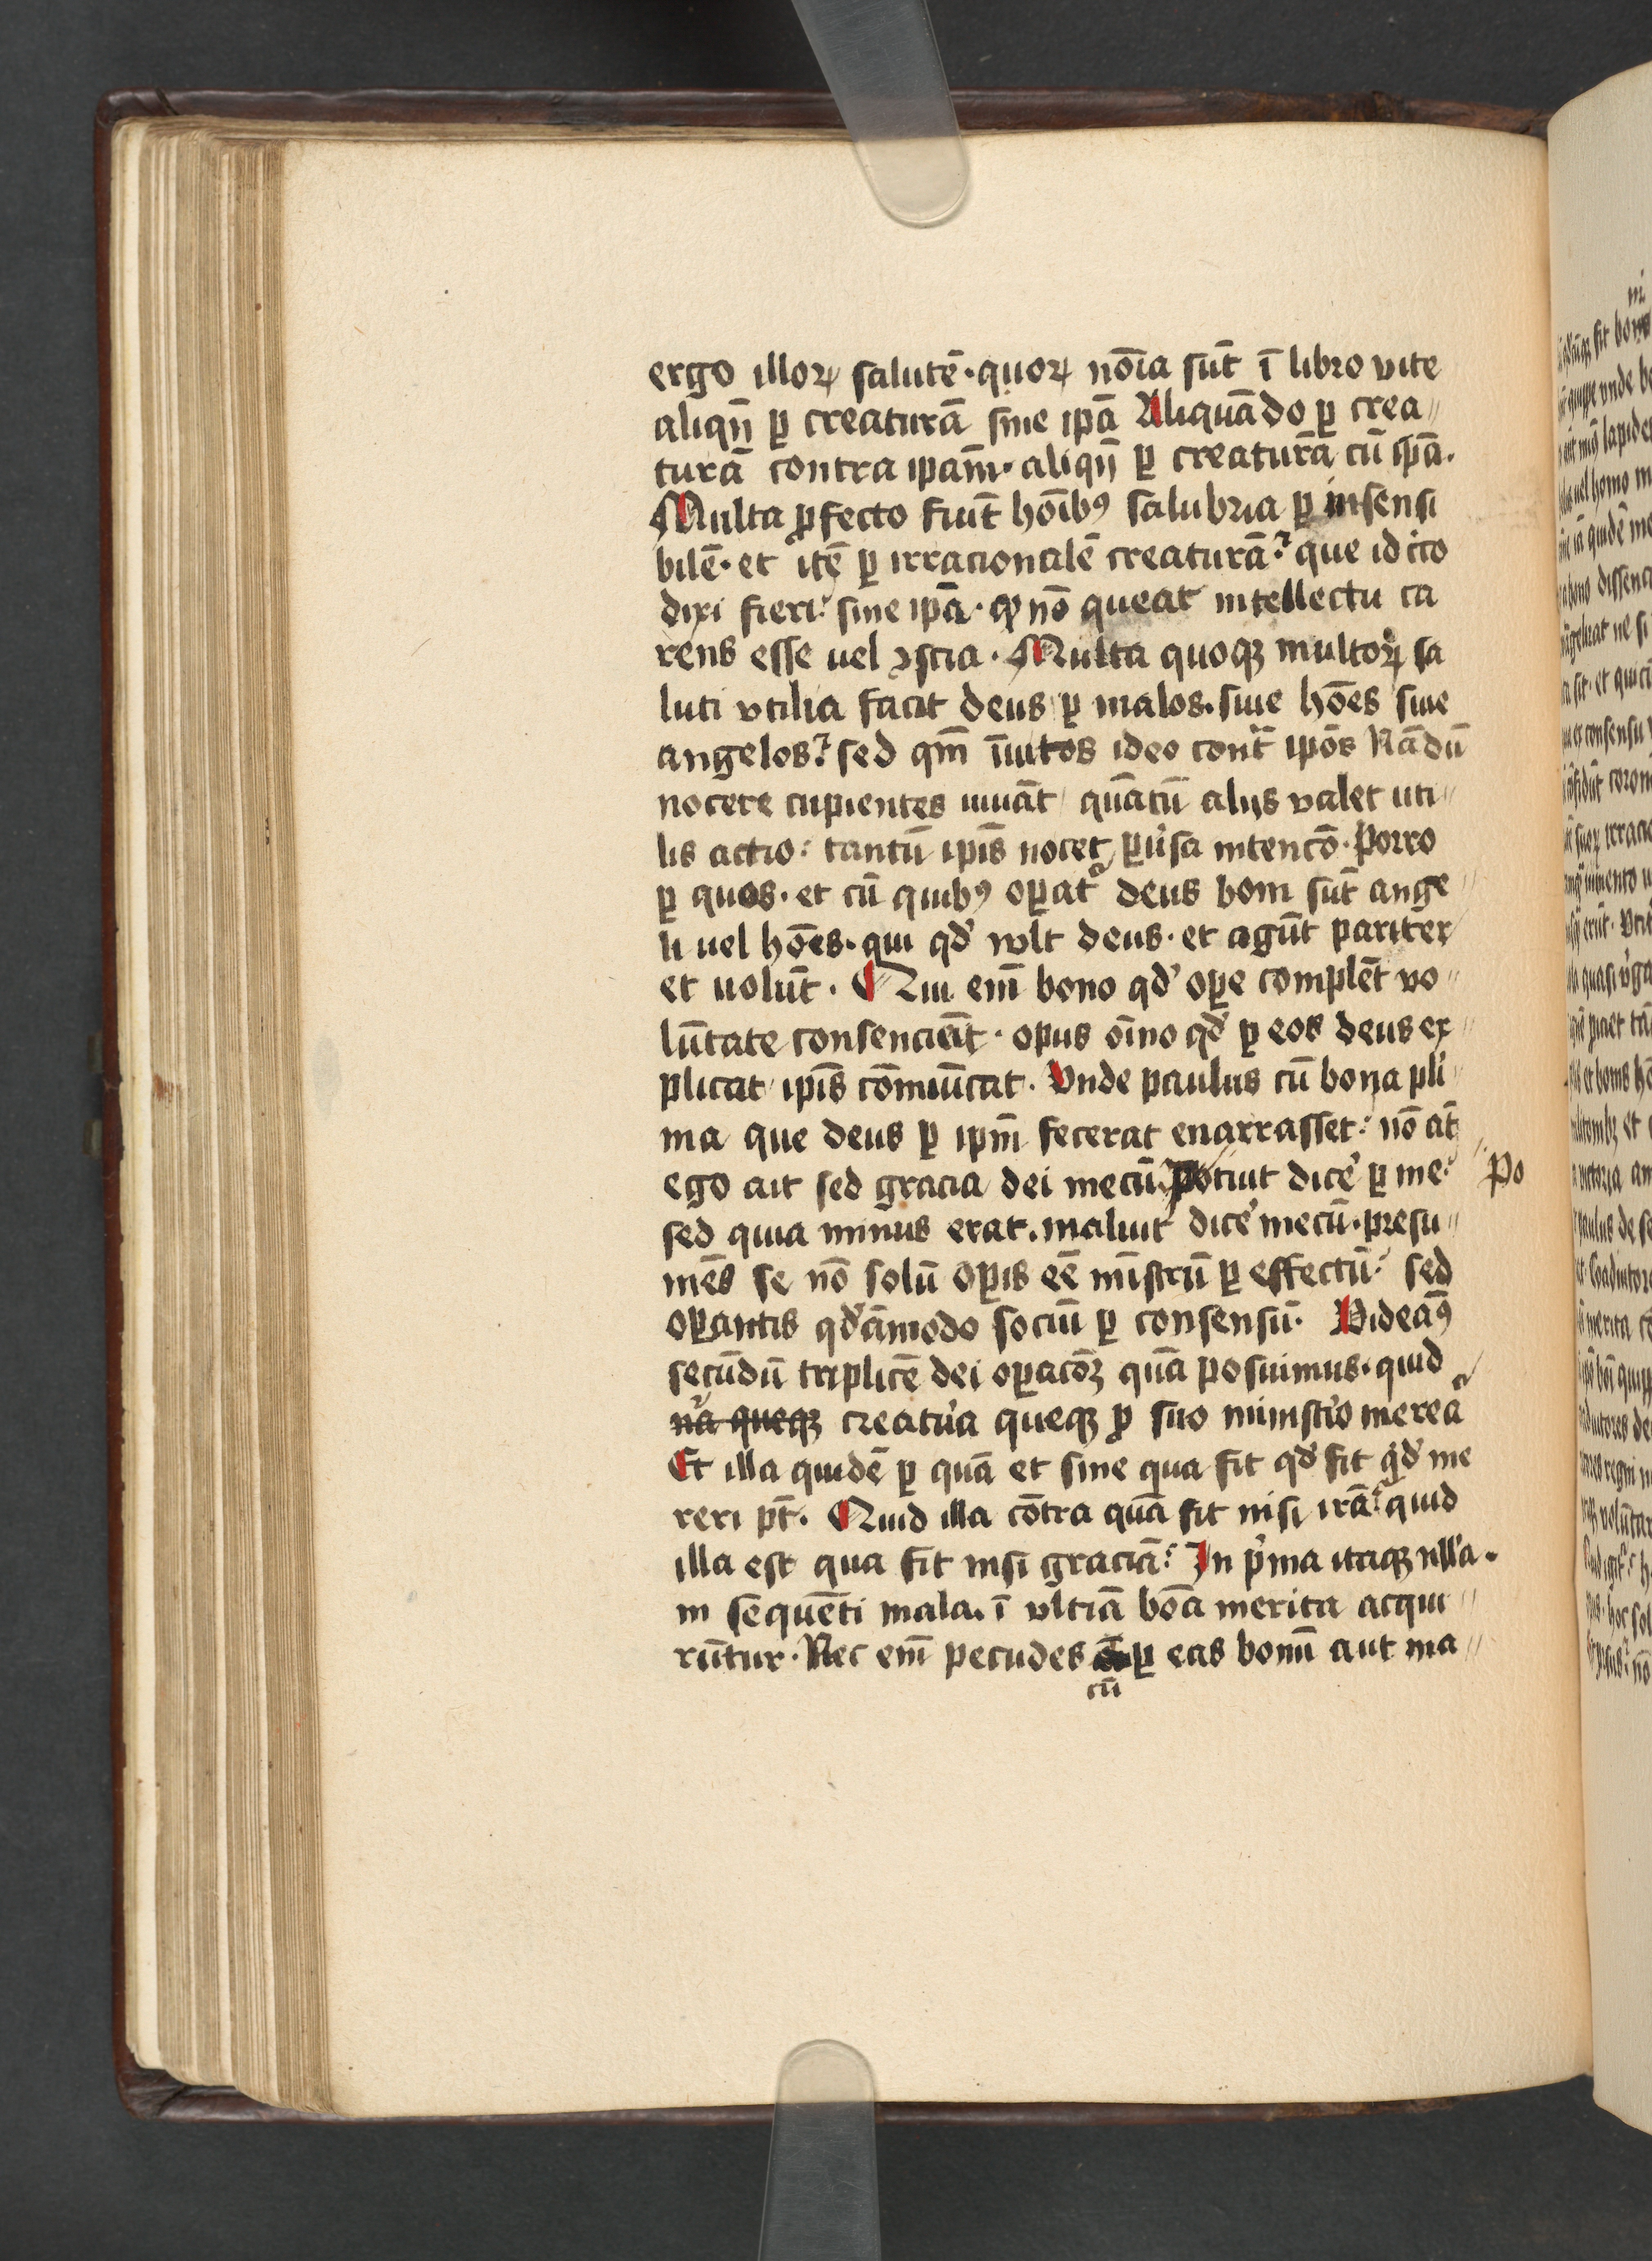 ergo illoꝝ salutē · quoꝝ nōīa sūt ī libro vite
aliqn̄ ꝑ creaturā sine ipā Aliquādo ꝑ crea〃
turā contra ipam̄ · aliqn̄ ꝑ creaturā cū ipā ·
Multa ꝓfecto fiūt hoībꝰ salubria ꝑ insensi
bilē · et itē ꝑ irracionalē creaturā : que idcco
dixi fieri : sine ipā · qꝫ nō queat intellectu ca
rens esse uel ꝯscia · Multa quoqꝫ multoꝝ sa
luti vtilia facit deus ꝑ malos · siue hōes siue
angelos : sed qm̄ īuitos ideo cont̄ ipōs Nā dū
nocere cupientes iuuāt quātū alijs valet uti〃
lis actio : tantū ipīs nocet ꝑuˀsa intencō · Porro
ꝑ quos · et cū quibꝰ oꝑatˀ deus boni sūt ange〃
li uel hōes · qui qdˀ vult deus · et agūt pariter
et uolūt · Qui em̄ bono qdˀ oꝑe complēt vo〃
lūtate consenciēt · opus oīno qdˀ ꝑ eos deus ex〃
plicat ipīs cōmūicat · Vnde paulus cū bona pliˀ
ma que deus ꝑ ipm̄ fecerat enarrasset : nō āt
ego ait sed gracia dei mecū · Potuit dicˀe ꝑ me : Po
sed quia minus erat · maluit dicˀe mecū · presu〃
mēs se nō solū oꝑis eē mīstrū ꝑ effectū : sed
oꝑantis qdˀāmodo sociū ꝑ consensū · Videāꝰ
secūdū triplicē dei oꝑacōꝫ quā posuimus · quid
nˀa queqꝫ creatˀa queqꝫ ꝓ suo ministˀio mereaˀ
Et illa quidē ꝑ quā et sine qua fit qdˀ fit qˀdˀ me
reri pt̄ · Quid illa cōtra quā fit nisi irā : quid
illa est qua fit nisi graciā : In pˀma itaqꝫ nllˀa ·
in sequēti mala · ī vltiā bōa merita acqui〃
rūtur · Nec em̄ pecudes ꝑ eas bonū aut ma〃
cū